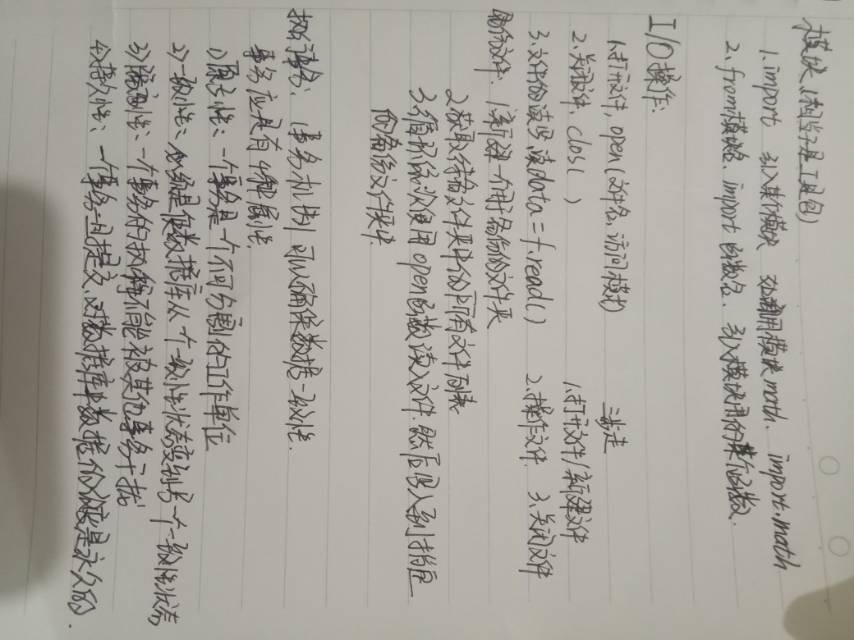 模块(相当于是工具包)
1.import 引入某个模块 如调用模块math. import.math
2.from模块名.import 函数名. 引入模块里的某个函数.
I/O操作.
1.打开文件, open(文件名, 访问模式)
2.关闭文件. clos( )
3.文件的读写, 读data=f.read( )
三步走
1.打开文件/新建文件
2.操作文件. 3.关闭文件
备份文件. 1.新建一个用于备份的文件夹
2.获取待备文件夹中的所有文件列表
3.循环依次使用open函数读入文件. 然后写入到指定
的备份文件夹中.
执行事务: (事务机制) 可以确保数据一致性.
事务应具有4种属性.
1)原子性: 一个事务是一个不可分割的工作单位
2)一致性: 必须是使数据库从一个一致性状态变到另一个一致性状态
3)隔离性: 一个事务的执行不能被其他事务干扰
4)持久性: 一个事务一旦提交, 对数据库中数据的改变是永久的.